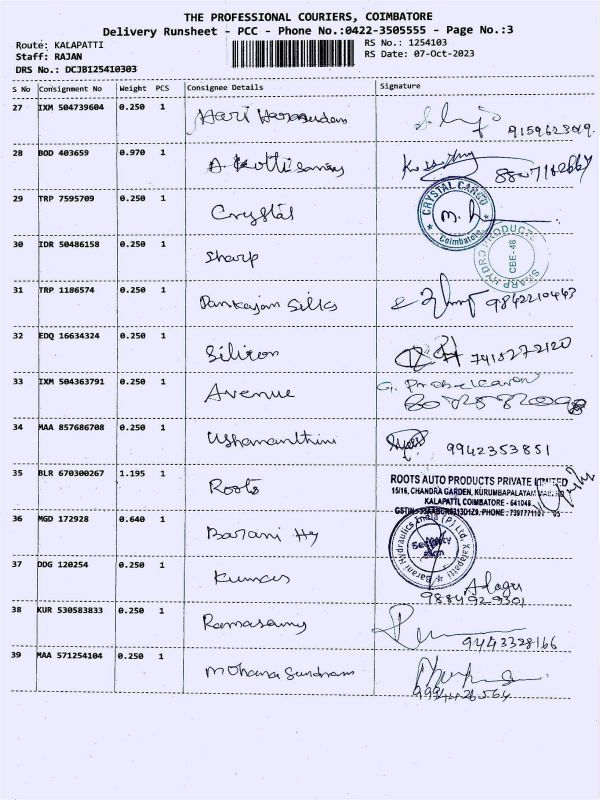 THE PROFESSIONAL COURIERS, COIMBATORE
Delivery Runsheet - PCC - Phone No.:0422-3505555 - Page No.:3
Route: KALAPATTI RS No.: 1254103
Staff: RAJAN RS Date: 07-Oct-2023
DRS No.: DCJB125410303
S No Consignment No Weight PCS Consignee Details Signature
27 IXM 504739604 0.250 1 Hari
28 BOD 403659 0.970 1 A. Kuttisamy
29 TRP 7595709 0.250 1 Crystal CRYSTAL CARGO Coimbatore
30 IDR 50486158 0.250 1 Sharp SHARP HYDRO PRODUCTS CBE-48
31 TRP 1186574 0.250 1 Pankajam Silks 9842210443
32 EDQ 16634324 0.250 1 Silicon 7418272120
33 IXM 504363791 0.250 1 Avenue G.
34 MAA 857686708 0.250 1 Ushananthini 9942353851
35 BLR 670300267 1.195 1 Roots ROOTS AUTO PRODUCTS PRIVATE LIMITED
15/16, CHANDRA GARDEN, KURUMBAPALAYAM
KALAPATTI, COIMBATORE - 641048
36 MGD 172928 0.640 1 Barani Hy Barani Hydraulics India (P) Ltd. Kalapatti
37 DDG 120254 0.250 1 Kumar Alagu
9884929301
38 KUR 530583833 0.250 1 Ramasamy 9443328166
39 MAA 571254104 0.250 1 Mohana Sundram